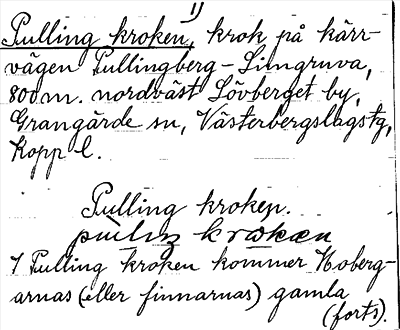 1)
Pulling kroken, krok på kärr-
vägen Pullingberg - Limgruva,
800 m. nordväst Lövberget by,
Grangärde sn, Västerbergslags tg,
Kopp l.
Pulling kroken.
7 Pulling kroken kommer Hoberg-
arnas (eller finnarnas) gamla
(forts).